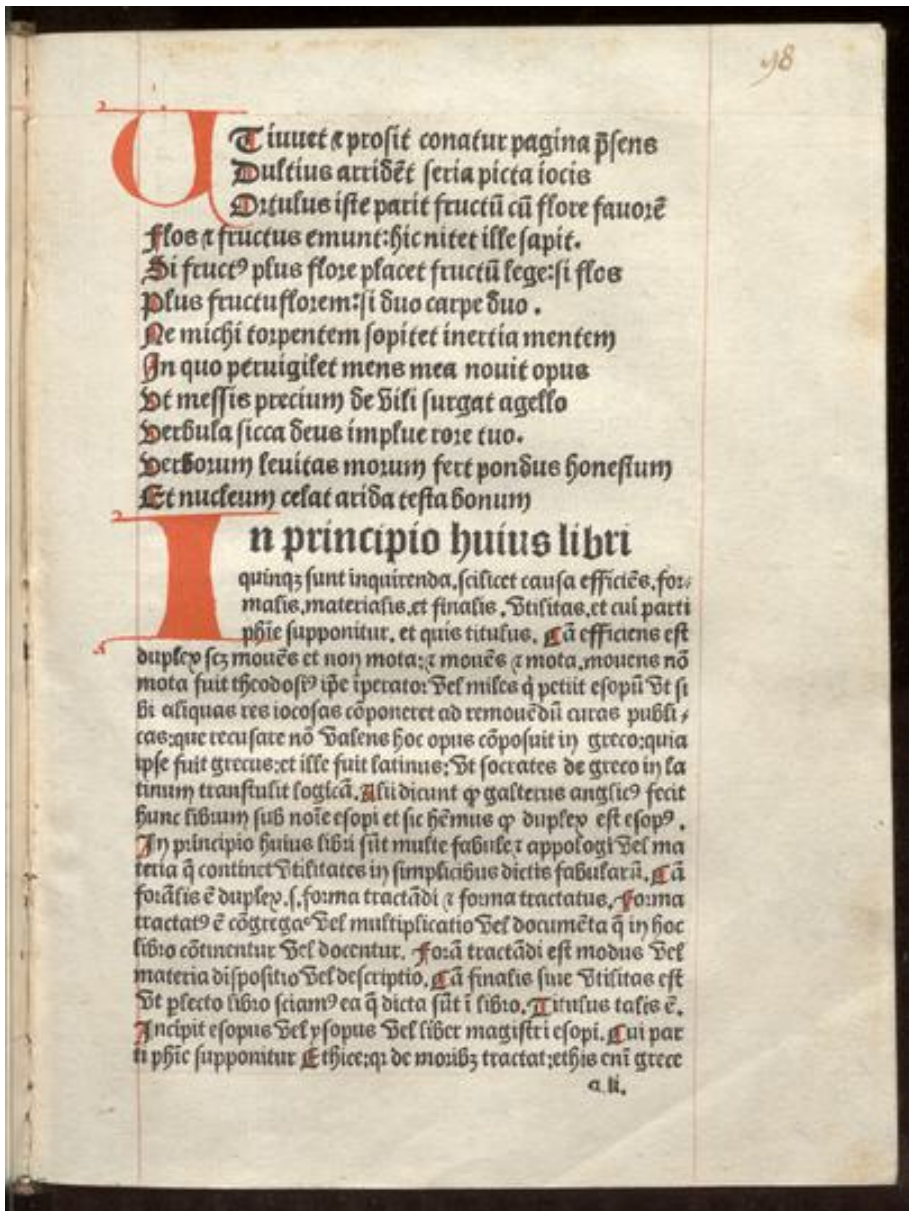 98
UTiuuet ⁊ prosit conatur pagina p̄sens
Dultius arridēt seria picta iocis
Ortulus iste parit fructū cū flore fauorē
Flos ⁊ fructus emunt: hic nitet ille sapit.
Si fructꝰ plus flore placet fructū lege: si flos
Plus fructu florem: si duo carpe duo.
Ne michi torpentem sopitet inertia mentem
In quo peruigilet mens mea nouit opus
Vt messis precium de vili surgat agello
Verbula sicca deus implue rore tuo.
Verborum leuitas morum fert pondus honestum
Et nucleum celat arida testa bonum
In principio huius libri
quinqꝫ sunt inquirenda. scilicet causa efficiēs. for⸗
malis. materialis. et finalis. vtilitas. et cui parti
phīe supponitur. et quis titulus. Cā efficiens est
duplex scꝫ mouēs et non mota: ⁊ mouēs ⁊ mota. mouens nō
mota fuit theodosiꝰ ip̄e īperator vel miles q̇ petiit esopū vt si
bi aliquas res iocosas cōponeret ad remouēdū curas publi⸗
cas: que recusare nō valens hoc opus cōposuit in greco: quia
ipse fuit grecus: et ille fuit latinus: vt socrates de greco in la
tinum transtulit logicā. Alii dicunt ꝙ galterus anglicꝰ fecit
hunc librum sub noīe esopi et sic hēmus ꝙ duplex est esopꝰ.
In principio huius libri sūt multe fabule ⁊ appologi vel ma
teria q̄ continet vtilitates in simplicibus dictis fabularū. Cā
forālis ē duplex. s. forma tractādi ⁊ forma tractatus. Forma
tractatꝰ ē cōgregaᵒ vel multiplicatio vel documēta q̄ in hoc
libro cōtinentur vel docentur. Forā tractādi est modus vel
materia dispositio vel descriptio. Cā finalis siue vtilitas est
vt ꝑlecto libro sciamꝰ ea q̄ dicta sūt ī libro. Titulus talis ē.
Incipit esopus vel ysopus vel liber magistri esopi. Cui par
ti phīe supponitur Ethice: qꝛ de moribꝫ tractat: ethis enī grece
a ii.